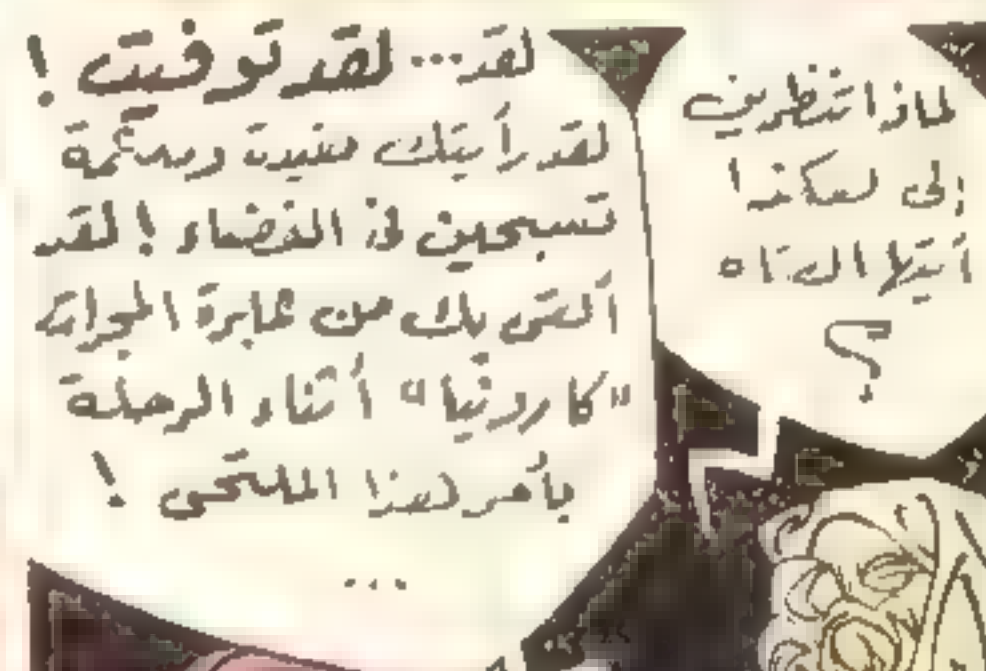 لماذا تنظرين
إلى هكذا
أيتها الفتاة
؟
لقد... لقد توفيت !
لقد رأيتك مقيدة ومكممة
تسبحين في الفضاء ! لقد
ألقى بك من عابرة المجرات
"كارونيا" أثناء الرحلة
بأمر هذا الملتحى !
...